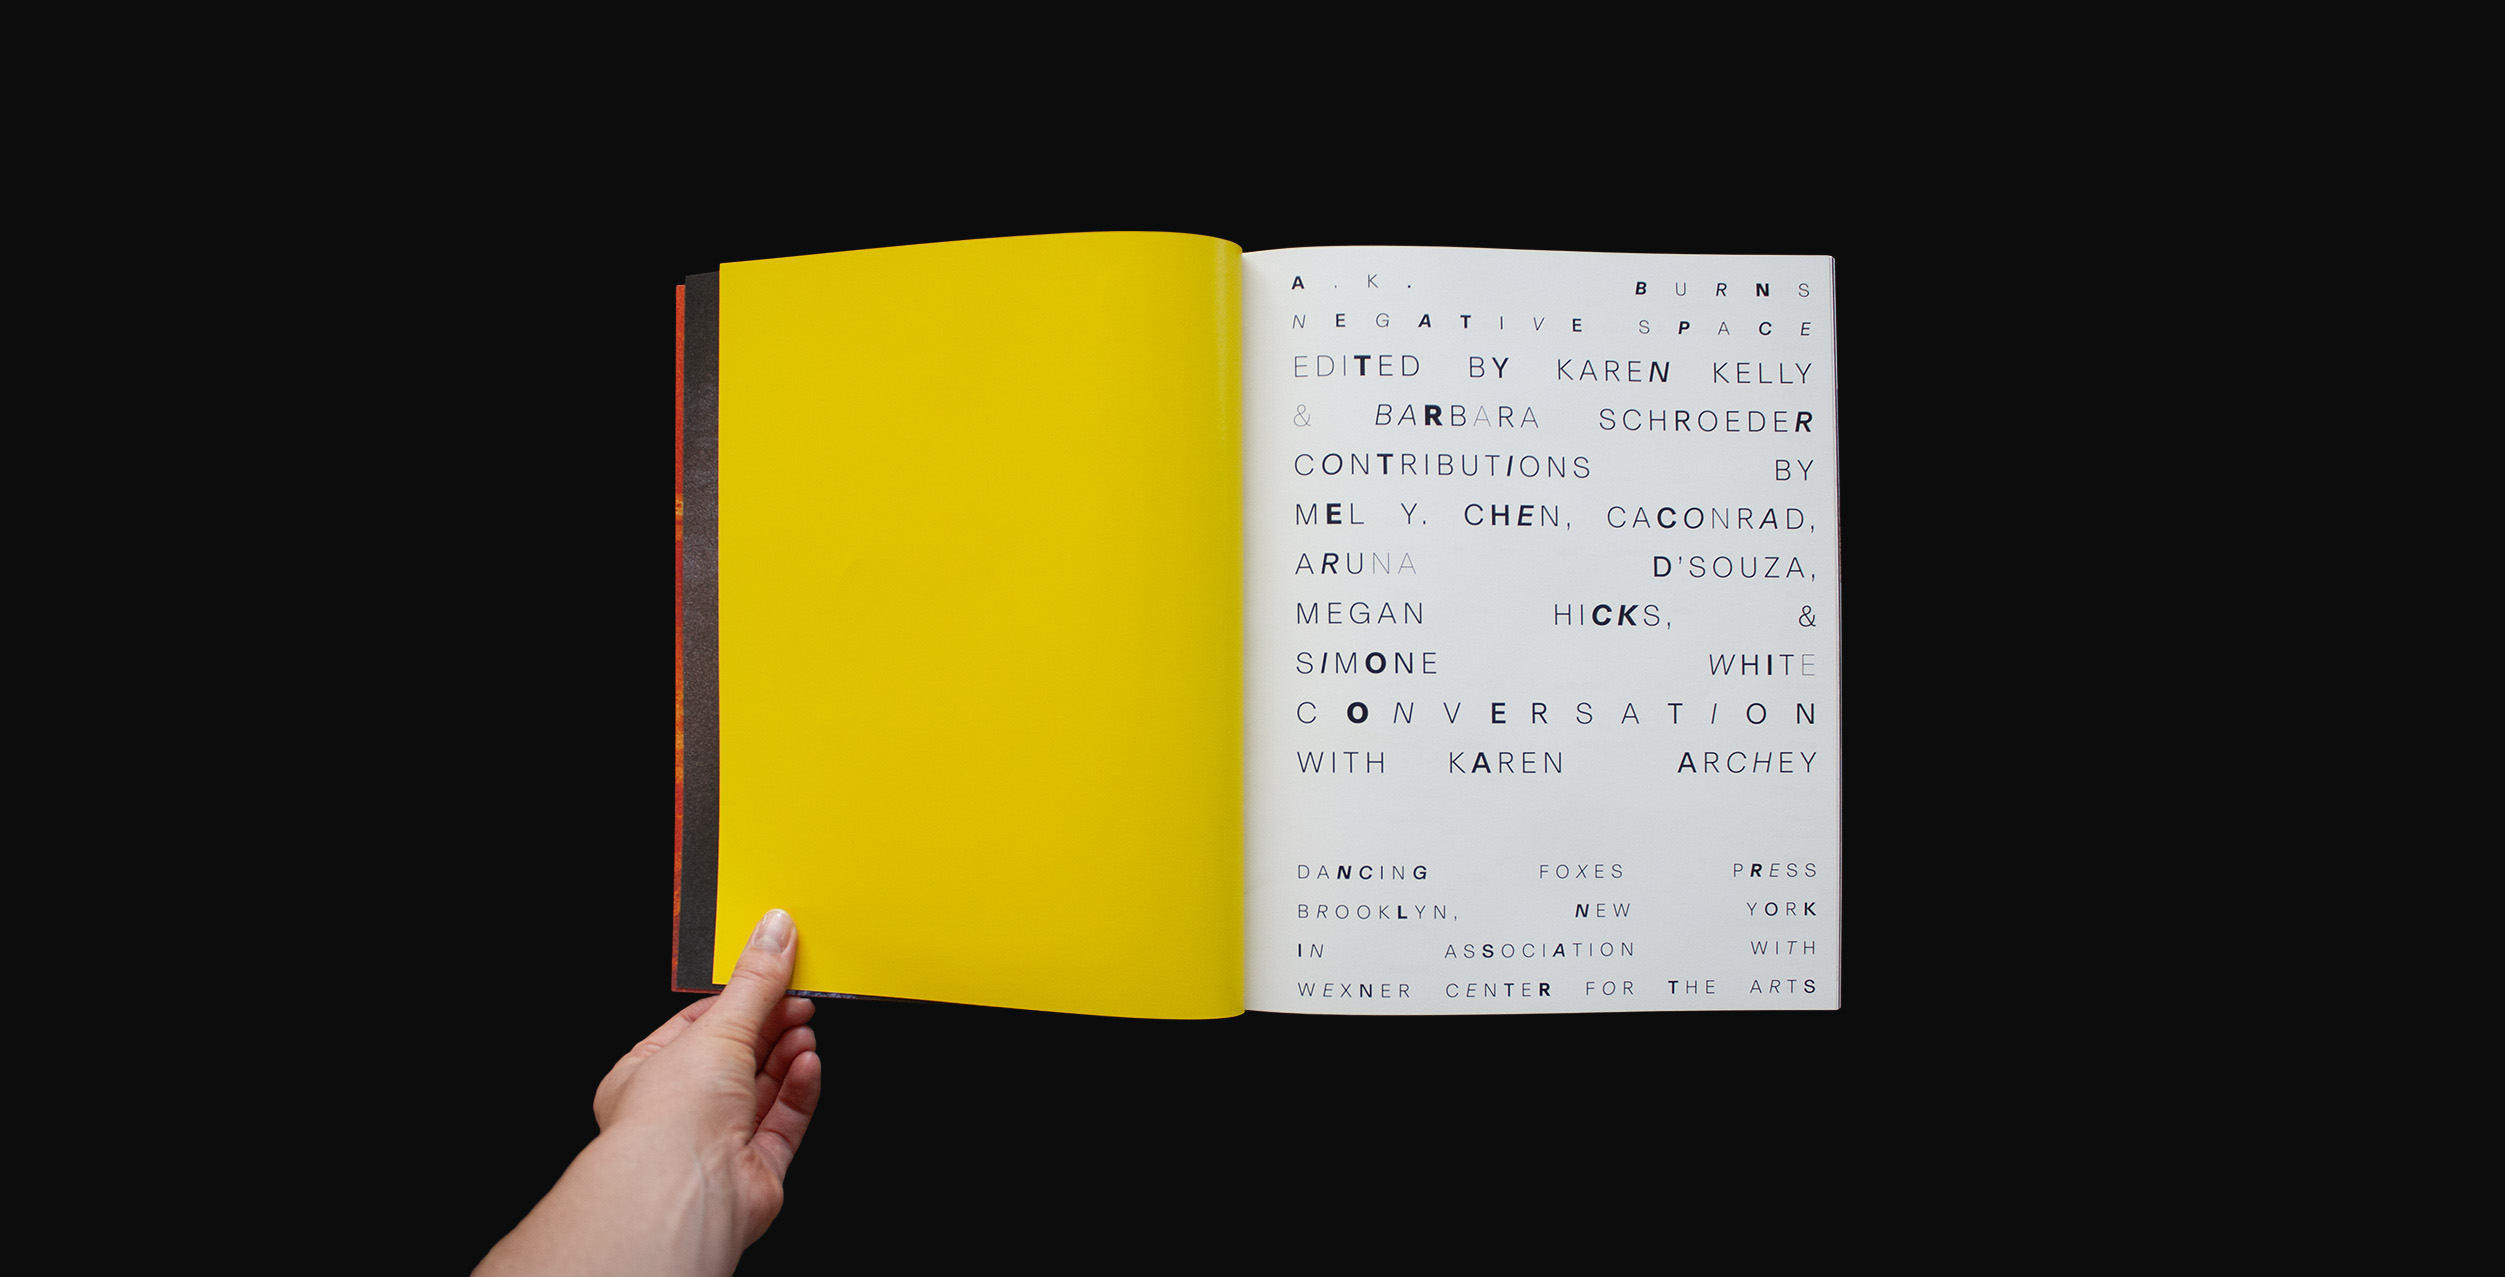 A.K. BURNS
NEGATIVE SPACE
EDITED BY KAREN KELLY
& BARBARA SCHROEDER
CONTRIBUTIONS BY
MEL Y. CHEN, CACONRAD,
ARUNA D'SOUZA,
MEGAN HICKS, &
SIMONE WHITE
CONVERSATION
WITH KAREN ARCHEY
DANCING FOXES PRESS
BROOKLYN, NEW YORK
IN ASSOCIATION WITH
WEXNER CENTER FOR THE ARTS